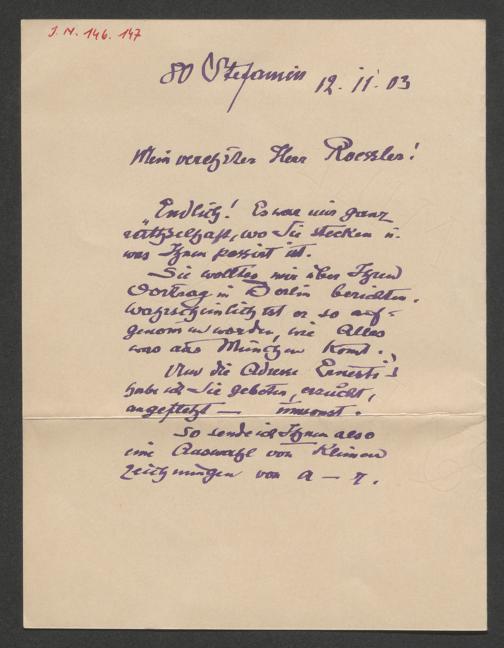 J. N. 146.147
80 Stefanien 12. 11. 03
Mein verehrter Herr Roessler!
„Endlich! Es war mir ganz
räthselhaft, wo Sie stecken u.
was Ihnen passirt ist.
Sie wollten mir über Ihren
Vortrag in Berlin berichten.
Wahrscheinlich ist er so auf-
genommen worden, wie Alles
was aus München komt.
Um die Adresse
habe ich Sie gebeten, ersucht,
angefleht — umsonst.
So sende ich Ihnen also
eine Auswahl von kleinen
Zeichnungen von a – r.